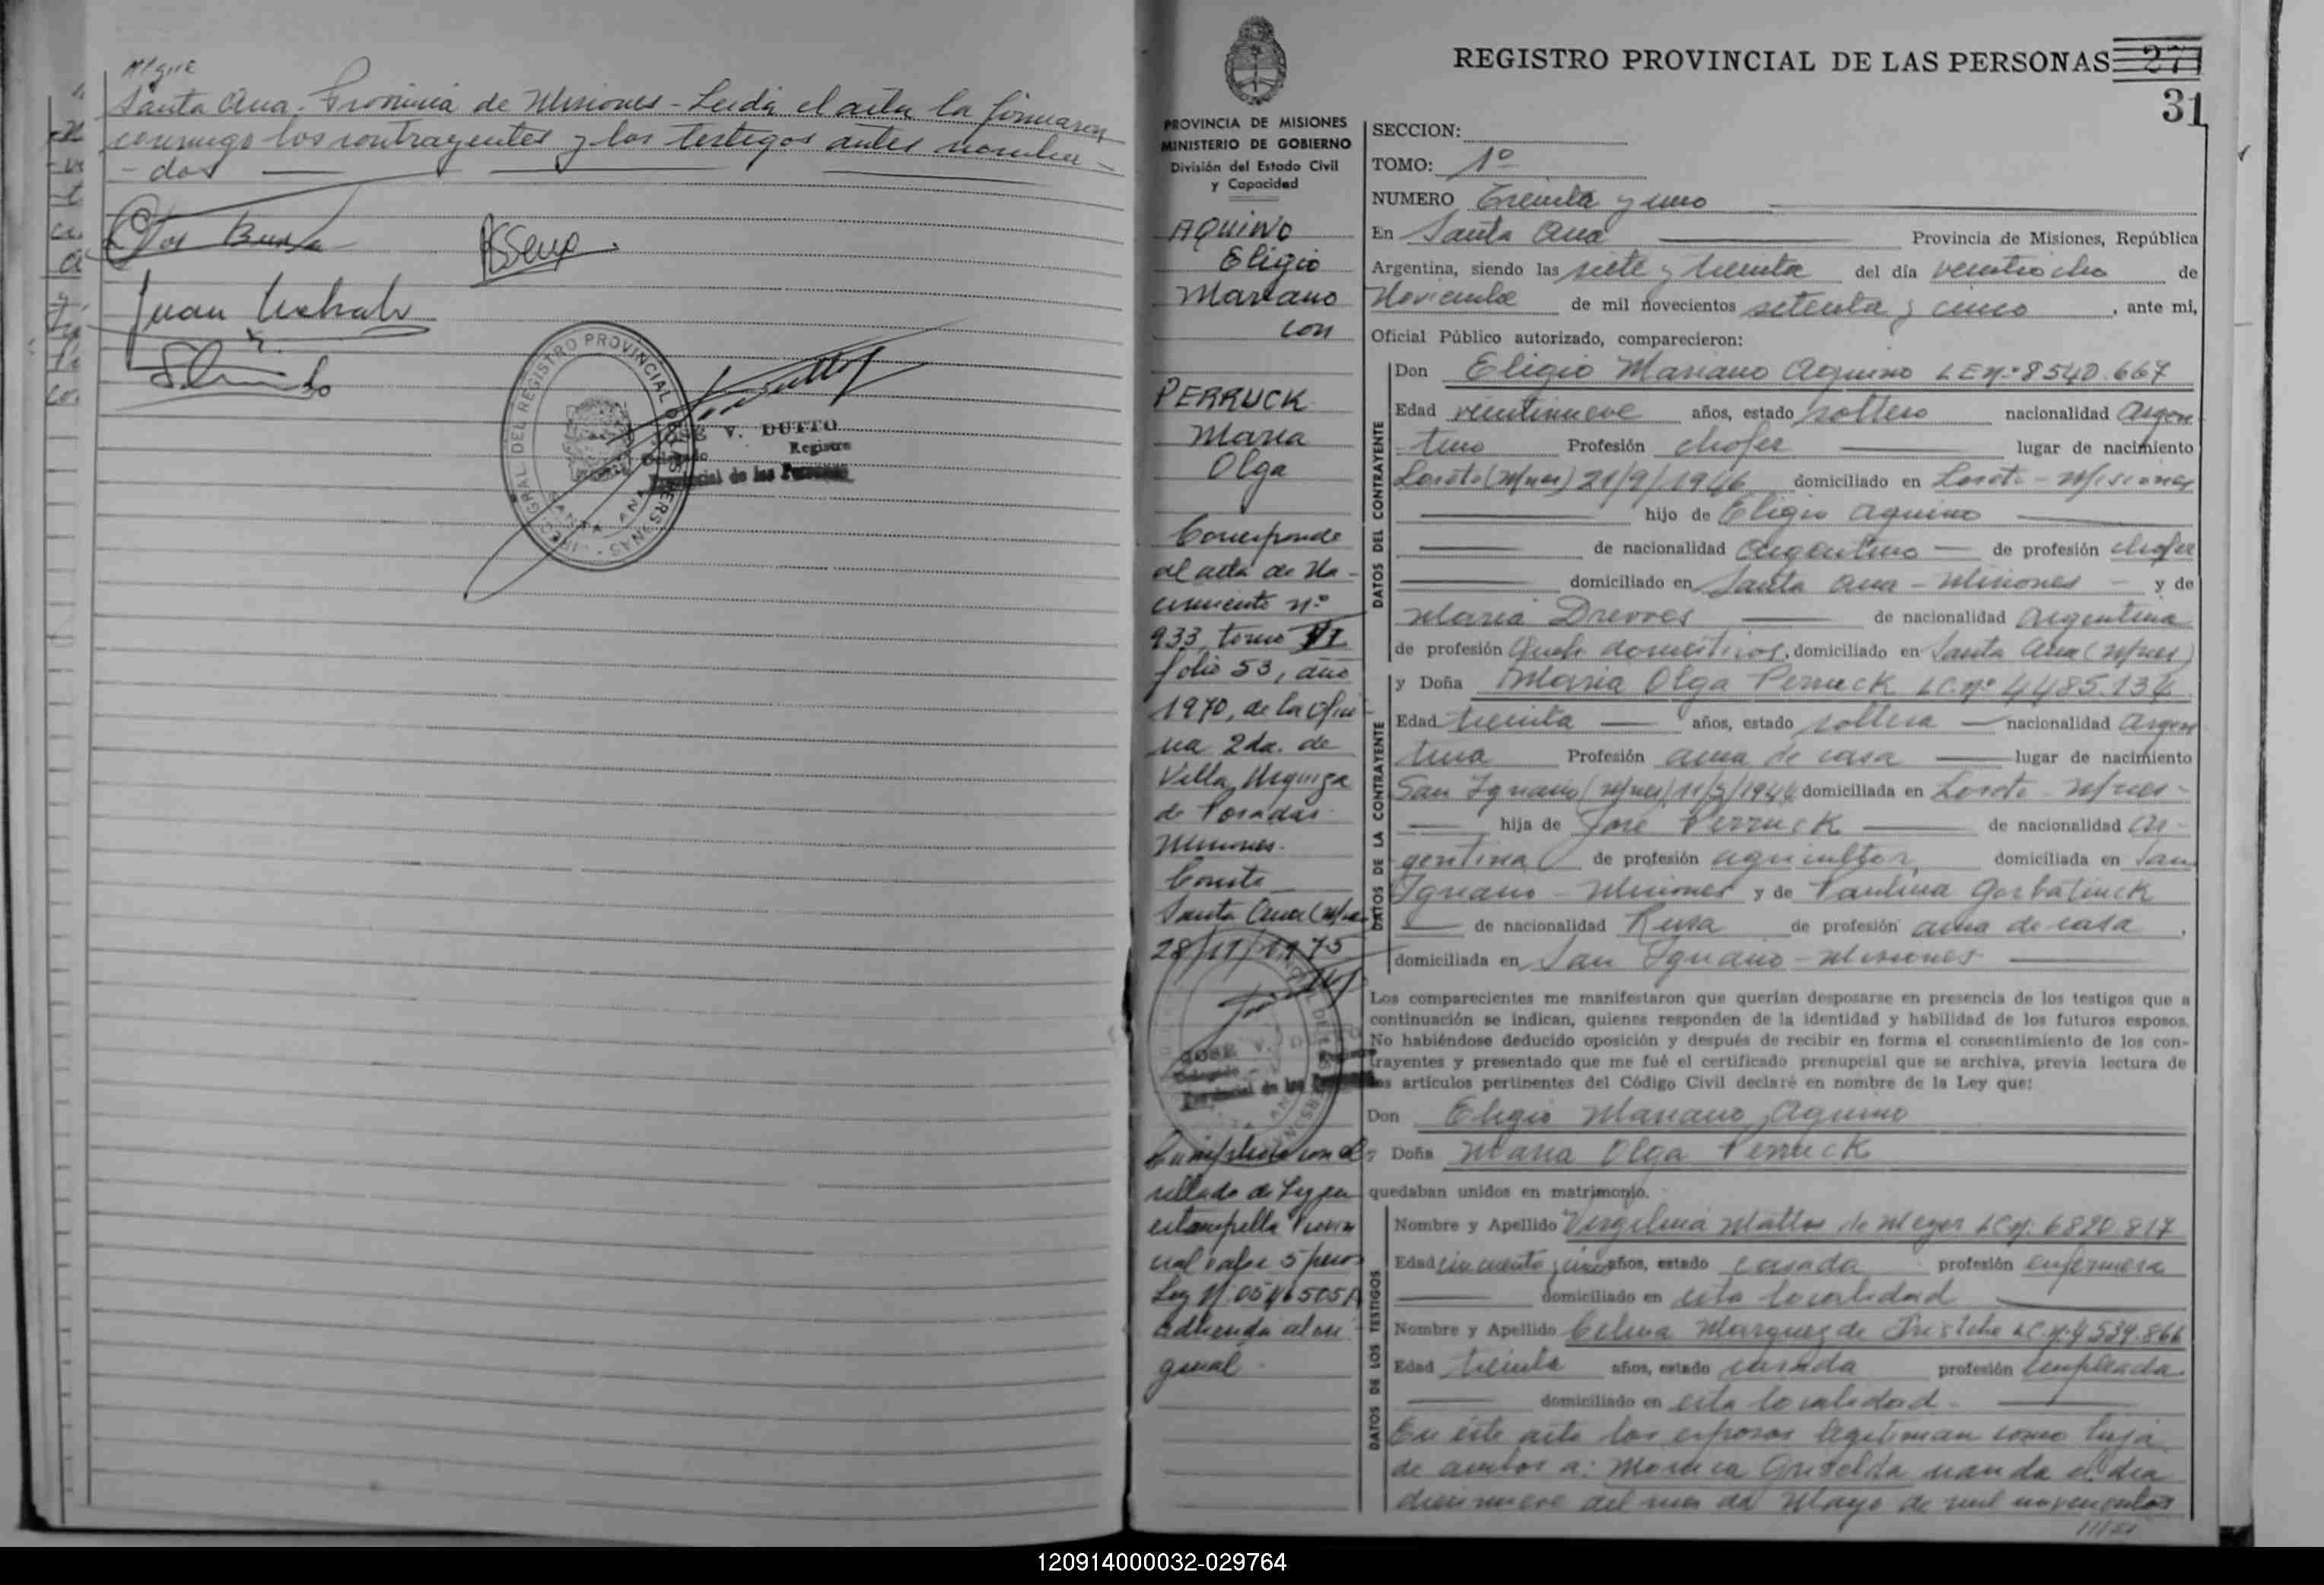 Sigue
Santa Ana. Provincia de Misiones - Leida el acta la firmaron
conmigo los contrayentes y los testigos antes nombra-
- dos
Juan
REGISTRO PROVINCIAL
V. DUTTO
Delegado Registro
Provincial de las Personas
REGISTRO PROVINCIAL DE LAS PERSONAS 271
31
PROVINCIA DE MISIONES
MINISTERIO DE GOBIERNO
División del Estado Civil
y Capacidad
AQUINO
Eligio
Mariano
con
PERRUCK
Maria
Olga
Corresponde
al acta de Na-
cimiento nº
933, tomo VI
folio 53, año
1970, de la ofici-
na 2da. de
Villa Urquiza
de Posadas
Misiones.
Conste
Santa Ana (Mnes)
28/11/1975
JOSE V. D
Delegado Registro
Provincial de las Personas
Cumplido con el
sellado de Ley en
estampilla Provin
cial valor 5 pesos
Ley Nº
adherida al ori
ginal -
SECCION:
TOMO: 1º
NUMERO Treinta y uno
En Santa Ana Provincia de Misiones, República
Argentina, siendo las siete y treinta del día veintiocho de
Noviembre de mil novecientos setenta y cinco, ante mi,
Oficial Público autorizado, comparecieron:
DATOS DEL CONTRAYENTE
Don Eligio Mariano Aquino L E nº 8540.667
Edad veintinueve años, estado soltero nacionalidad argen
tino Profesión chofer lugar de nacimiento
Loreto (Mnes) 21/9/1946 domiciliado en Loreto - Misiones
hijo de Eligio Aquino
de nacionalidad argentino - de profesión chofer
domiciliado en Santa Ana - Misiones - y de
Maria de nacionalidad argentina
de profesión Queh. domésticos, domiciliado en Santa Ana (Mnes)
DATOS DE LA CONTRAYENTE
y Doña Maria Olga Perruck LC. nº 4485.134
Edad treinta años, estado soltera nacionalidad argen
tina Profesión ama de casa lugar de nacimiento
San Ignacio (Mnes) domiciliada en Loreto - Mnes -
hija de José Perruck de nacionalidad ar-
gentina de profesión agricultor, domiciliada en San
Ignacio - Misiones y de Paulina Gorbatiuck
de nacionalidad Rusa de profesión ama de casa,
domiciliada en San Ignacio - Misiones
Los comparecientes me manifestaron que querían desposarse en presencia de los testigos que a
continuación se indican, quienes responden de la identidad y habilidad de los futuros esposos.
No habiéndose deducido oposición y después de recibir en forma el consentimiento de los con-
trayentes y presentado que me fué el certificado prenupcial que se archiva, previa lectura de
los artículos pertinentes del Código Civil declaré en nombre de la Ley que:
Don Eligio Mariano Aquino
y Doña Maria Olga Perruck
quedaban unidos en matrimonio.
DATOS DE LOS TESTIGOS
Nombre y Apellido Virgilina Mattos de Meyer LC nº 6820.817
Edad cincuenta años, estado casada profesión enfermera
domiciliado en esta localidad
Nombre y Apellido Celina Marquez de LC. nº 4.539.866
Edad treinta años, estado casada profesión empleada
domiciliado en esta localidad -
En éste acto los esposos legitiman como hija
de ambos a: Monica Griselda nacida el dia
diecinueve del mes de Mayo de mil novecientos
120914000032-029764